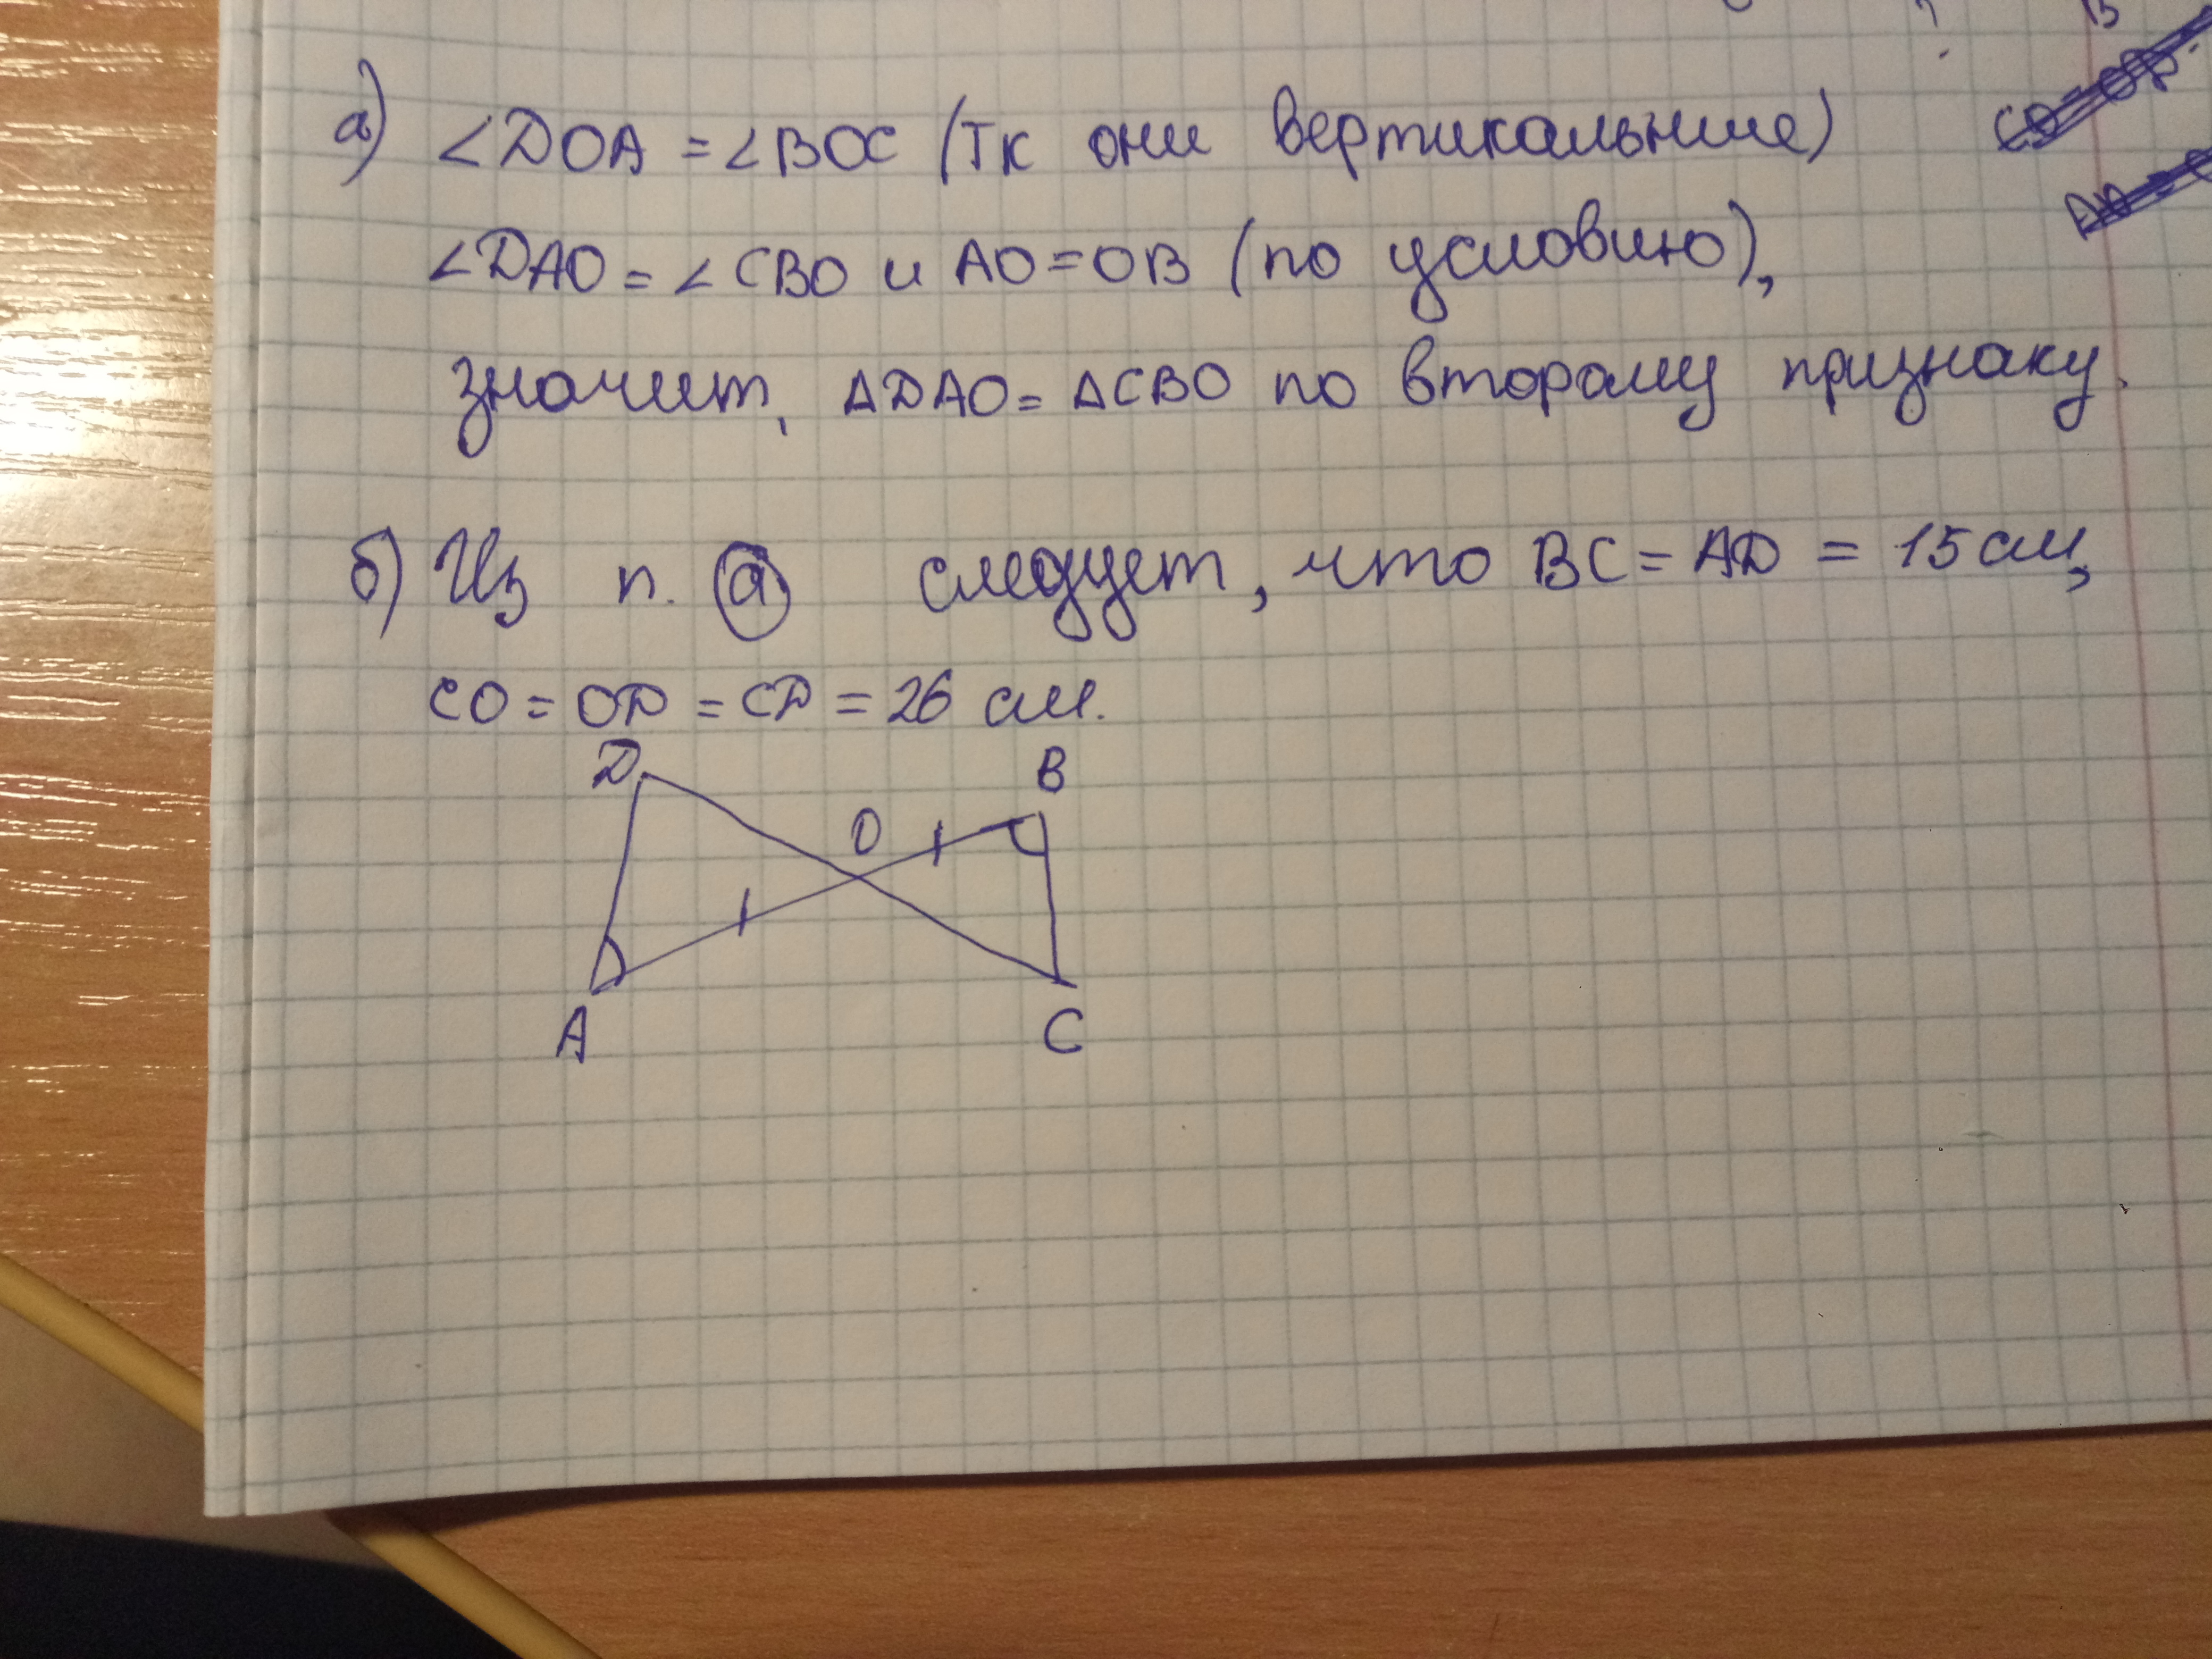 а) ∠DOA = ∠BOC (Тк они вертикальные)
∠DAO = ∠CBO и AO = OB (по условию),
значит, ΔDAO = ΔCBO по второму признаку.
б) Из п. а следует, что BC = AD = 15 см,
CO = OD = CD = 26 см.
D
B
O
A
C